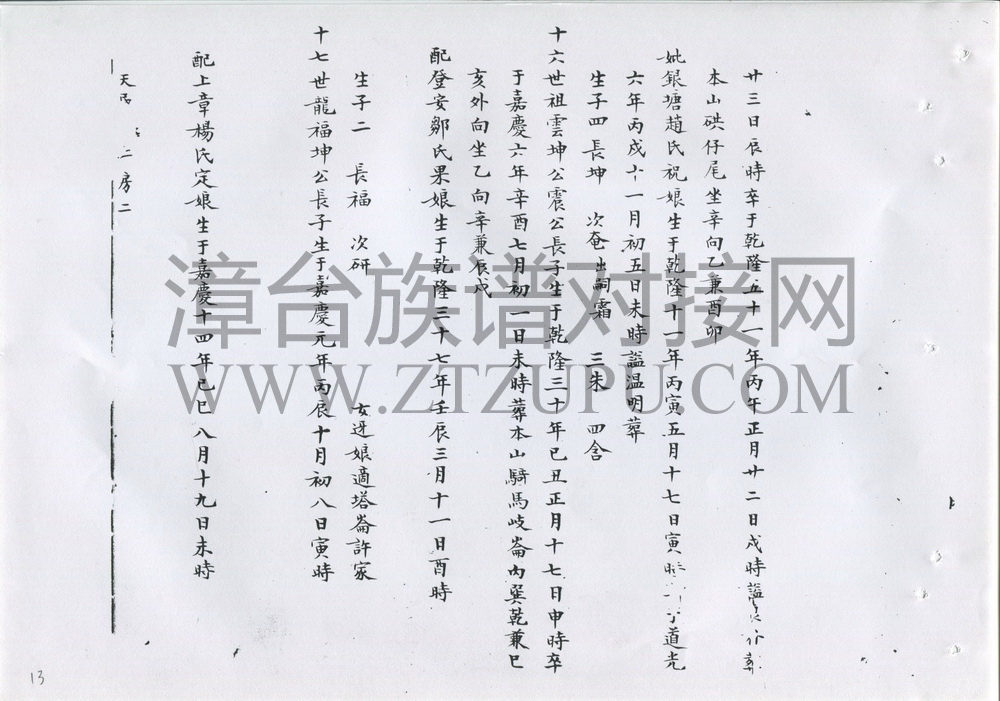 廿三日辰時卒于乾隆五十一年丙午正月廿二日戌時諡
本山硔仔尾坐辛向乙兼酉卯
妣銀塘趙氏祝娘生于乾隆十一年丙寅五月十七日寅時 道光
六年丙戌十一月初五日未時諡温明葬
生子四 長坤 次奄出嗣霜 三朱 四含
十六世祖雲坤公震公長子生于乾隆三十年己丑正月十七日申時卒
于嘉慶六年辛酉七月初一日未時葬本山騎馬岐崙內巽乾兼巳
亥外向坐乙向辛兼辰戌
配登安鄒氏果娘生于乾隆三十七年壬辰三月十一日酉時
生子二 長福 次研 女迓娘適塔崙許家
十七世龍福坤公長子生于嘉慶元年丙辰十月初八日寅時
配上章楊氏定娘生于嘉慶十四年己巳八月十九日未時
天 二房二
13
漳台族谱对接网
WWW.ZTZUPU.COM